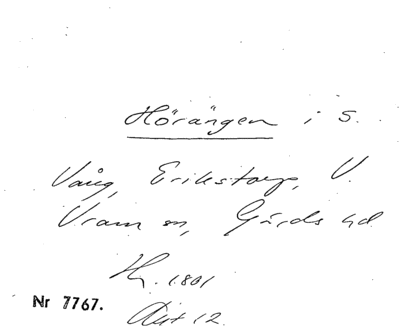 Hörängen i S.
Vång, Erikstorp, V.
Vram sn, Gärds hd
Hy. 1801
Nr 7767.
Akt 12.